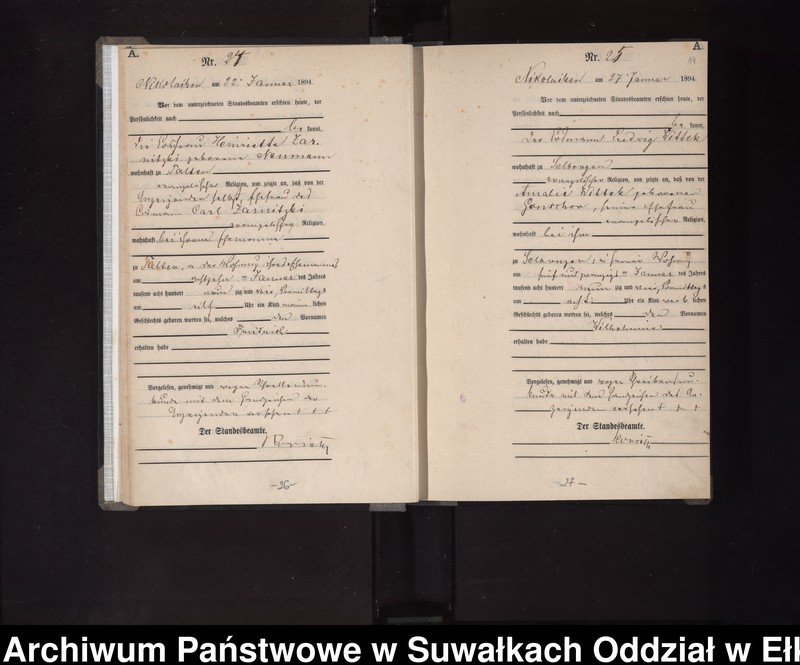 A.
Nr. 24
Nikolaiken am 22. Januar 1894.
Vor dem unterzeichneten Standesbeamten erschien heute, der
Persönlichkeit nach
be kannt,
die Losfrau Henriette Zar-
nitzki geborene Neumann
wohnhaft zu Talten
evangelischer Religion, und zeigte an, daß von der
Anzeigenden selbst, Ehefrau des
Losmann Carl Zarnitzki
evangelischer Religion,
wohnhaft bei ihrem Ehemanne
zu Talten, in der Wohnung ihres Ehemannes
am achtzehn = Januar des Jahres
tausend acht hundert neun zig und vier, Vormittags
um elf Uhr ein Kind männ lichen
Geschlechts geboren worden sei, welches den Vornamen
Friedrich
erhalten habe
Vorgelesen, genehmigt und wegen Schreibensun-
kunde mit dem Handzeichen der
Anzeigenden versehen + + +
Der Standesbeamte.
—26—
A
14
Nr. 25
Nikolaiken am 27. Januar 1894.
Vor dem unterzeichneten Standesbeamten erschien heute, der
Persönlichkeit nach
be kannt,
der Losmann Ludwig Wittek
wohnhaft zu Selbongen
evangelischer Religion, und zeigte an, daß von der
Amalie Wittek geborenen
Gonschor, seine Ehefrau
evangelischer Religion,
wohnhaft bei ihm
zu Selbongen, in seiner Wohnung
am fünf und zwanzig = Januar des Jahres
tausend acht hundert neun zig und vier, Vormittags
um acht Uhr ein Kind weib lichen
Geschlechts geboren worden sei, welches den Vornamen
Wilhelmine
erhalten habe
Vorgelesen, genehmigt und wegen Schreibensun-
kunde mit dem Handzeichen des An-
zeigenden versehen + + +
Der Standesbeamte.
—27—
Archiwum Państwowe w Suwałkach Oddział w Ełk